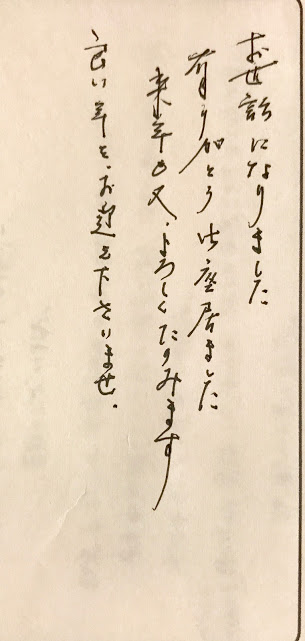 お世話になりました
有り加とう御座居ました
来年も又、よろしくたのみます
良い年を、お迎え下さいませ。